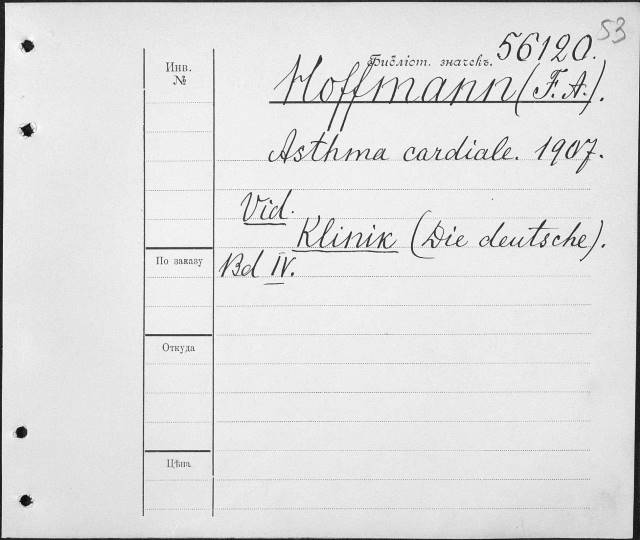 53
Инв.
№
Библіот. значекъ. 56120.
Hoffmann (F. A.).
Asthma cardiale. 1907.
Vid.
Klinik (Die deutsche).
Bd IV.
По заказу
Откуда
Цѣна